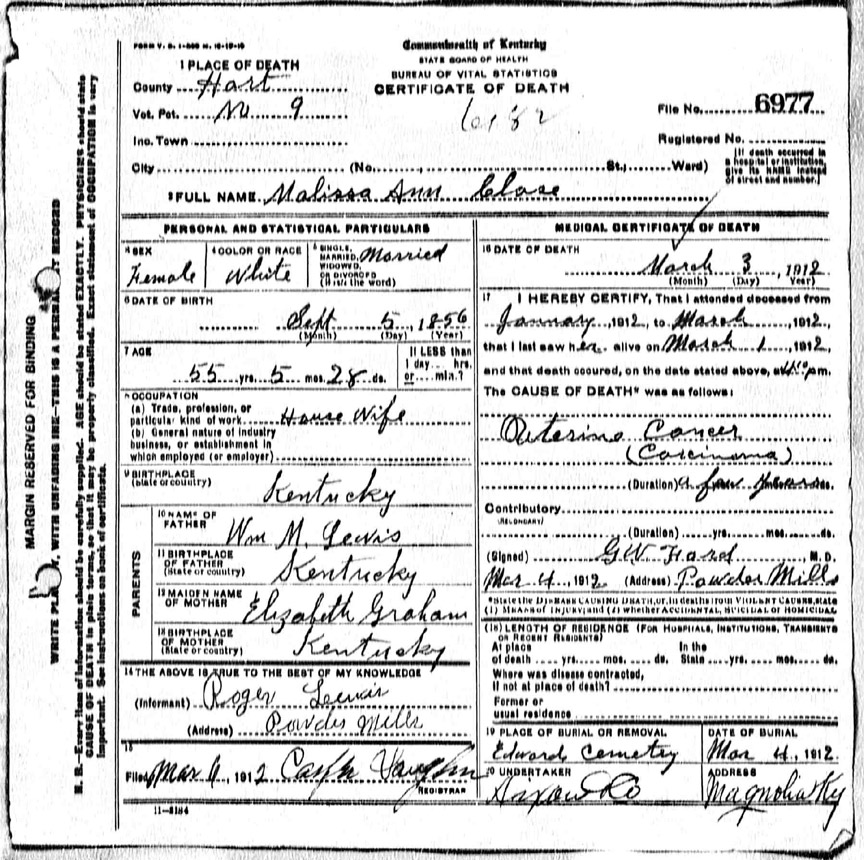 FORM V. S. 1-
Commonwealth of Kentucky
STATE BOARD OF HEALTH
BUREAU OF VITAL STATISTICS
CERTIFICATE OF DEATH
1 PLACE OF DEATH
County Hart
Vot. Pct. No 9
Inc. Town
City (No. St., Ward)
File No. 6977
Registered No.
[If death occurred in a hospital or institution, give its NAME instead of street and number.]
2 FULL NAME Malissa Ann Close
PERSONAL AND STATISTICAL PARTICULARS
3 SEX Female
4 COLOR OR RACE White
5 SINGLE, MARRIED, WIDOWED, OR DIVORCED (Write the word) Married
6 DATE OF BIRTH
Sept 5, 1856
(Month) (Day) (Year)
7 AGE
55 yrs. 5 mos. 28 ds.
If LESS than 1 day hrs. or min.?
8 OCCUPATION
(a) Trade, profession, or particular kind of work House Wife
(b) General nature of industry business, or establishment in which employed (or employer)
9 BIRTHPLACE
(State or country) Kentucky
PARENTS
10 NAME OF FATHER Wm M. Lewis
11 BIRTHPLACE OF FATHER (State or country) Kentucky
12 MAIDEN NAME OF MOTHER Elizabeth Graham
13 BIRTHPLACE OF MOTHER (State or country) Kentucky
14 THE ABOVE IS TRUE TO THE BEST OF MY KNOWLEDGE
(Informant) Roger Lewis
(Address) Powder Mills
15
Filed Mar 4, 1912 Vaughn
REGISTRAR
11-3184
MEDICAL CERTIFICATE OF DEATH
16 DATE OF DEATH
March 3, 1912
(Month) (Day) Year)
17 I HEREBY CERTIFY, That I attended deceased from
January, 1912, to March, 1912,
that I last saw her alive on March 1, 1912,
and that death occured, on the date stated above, at pm.
The CAUSE OF DEATH* was as follows:
Uterine Cancer
(Carcinoma)
(Duration) a few years
Contributory
(SECONDARY)
(Duration) yrs. mos. ds.
(Signed) G W Ford M. D.
Mar 4, 1912 (Address) Powder Mills
*State the DISEASE CAUSING DEATH, or, in deaths from VIOLENT CAUSES, state
(1) MEANS OF INJURY; and (2) whether ACCIDENTAL, SUICIDAL OR HOMICIDAL
(18) LENGTH OF RESIDENCE (FOR HOSPITALS, INSTITUTIONS, TRANSIENTS
OR RECENT RESIDENTS)
At place of death yrs. mos. ds. In the State yrs. mos. ds.
Where was disease contracted,
If not at place of death?
Former or
usual residence
19 PLACE OF BURIAL OR REMOVAL
Edward Cemetery
DATE OF BURIAL
Mar 4, 1912
20 UNDERTAKER
ADDRESS
Magnolia Ky
MARGIN RESERVED FOR BINDING
N. B.—Every item of information should be carefully supplied. AGE should be stated EXACTLY. PHYSICIANS should state
CAUSE OF DEATH in plain terms, so that it may be properly classified. Exact statement of OCCUPATION is very
important. See instructions on back of certificate.